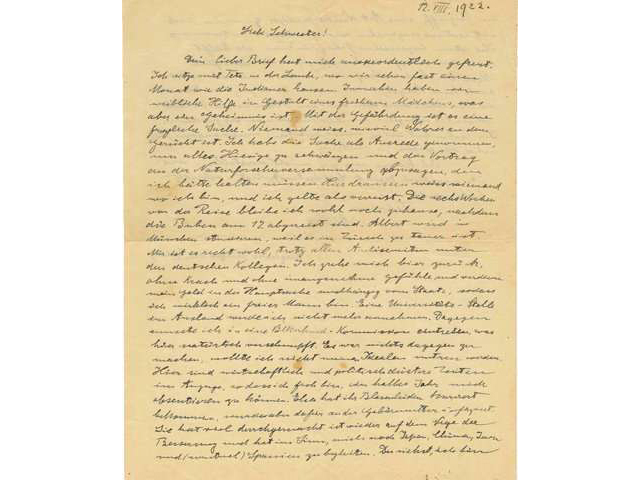 12. VIII. 1922.
Liebe Schwester!
Dein lieber Brief hat mich ausserordentlich gefreut.
Ich sitze mit Tete in der Laube, wo wir schon fast einen
Monat wie die Indianer hausen. Inzwischen haben wir
weibliche Hilfe in Gestalt eines früheren Mädchens, was
aber ein Geheimnis ist. Mit der Gefährdung ist es eine
fragliche Sache. Niemand weiss, wieviel Wahres an dem
Gerücht ist. Ich habe die Sache als Ausrede genommen,
um alles Hiesige zu schwänzen und den Vortrag
an der Naturforscherversammlung den
ich hätte halten müssen. Hier draussen weiss niemand
wo ich bin, und ich gelte als verreist. Die sechs Wochen
vor der Reise bleibe ich wohl noch zuhause, nachdem
die Buben am 17 abgereist sind. Albert wird in
München studieren, weil es in Zürich zu teuer ist.
Mir ist es recht wohl, trotz aller Antisemiten unter
den deutschen Kollegen. Ich gehe mich hier zurück,
ohne Krach und ohne unangenehme Gefühle und verdiene
mein Geld in der Hauptsache unabhängig vom Staat, sodass
ich wirklich ein freier Mann bin. Eine Universitäts-Stelle
im Ausland würde ich nicht mehr annehmen. Dagegen
musste ich in eine Völkerbund-Kommission eintreten, was
hier natürlich verschnupft. Es war nichts dagegen zu
machen, wollte ich nicht meinen Idealen untreu werden.
Hier sind wirtschaftlich und politisch düstere Zeiten
im Anzug, sodass ich froh bin, ein halbes Jahr mich
absentieren zu können. Ilse hat ihr Blasenleiden kuriert
bekommen, wurde aber dafür an der Gebärmutter operiert.
Sie hat viel durchgemacht ist wieder auf dem Wege der
Besserung und hat im Sinn, mich nach Japan, China, Java
und (eventuel) Spanien zu begleiten. Du siehst, ich bin